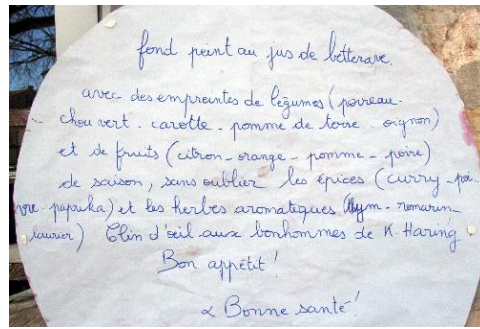 fond peint au jus de betterave
avec des empreintes de légumes (poireau-
chou vert - carotte - pomme de terre oignon)
et de fruits (citron - orange - pomme - poire)
de saison, sans oublier les épices (curry - poi-
vre - paprika) et les herbes aromatiques (thym - romarin -
laurier) Clin d'œil aux bonhommes de K. Haring
Bon appétit!
& Bonne santé!